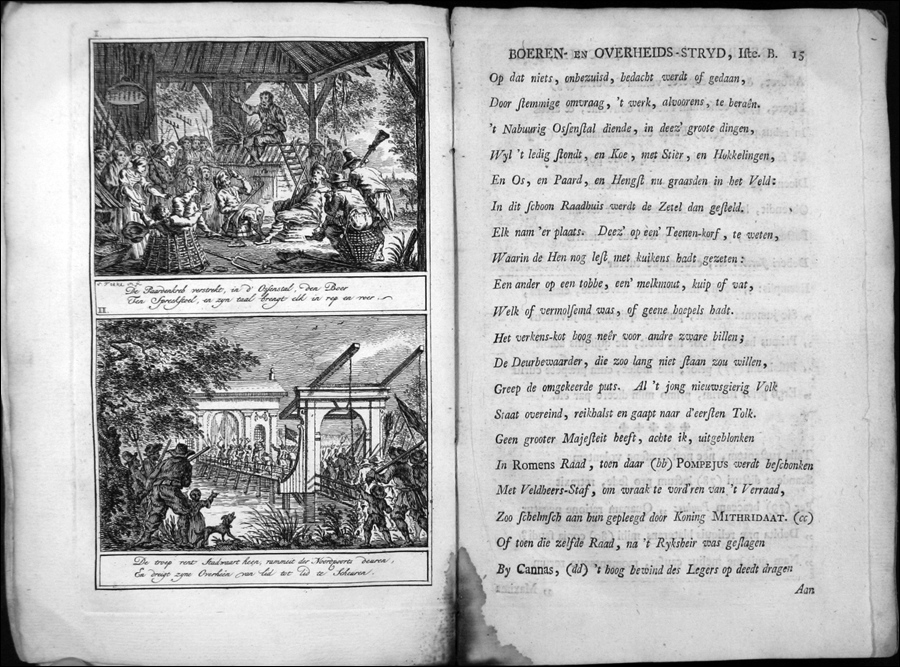 I.
De Paardenkreb verstrekt, in d' Ossenstal, den Boer
Ten Spreekstoel, en zyn taal brengt elk in rep en roer.
II.
De troep rent Stadwaart heen, rammeit der Noordpoorts deuren,
En dreigt zyne Overheén van lid tot lid te Scheuren.
BOEREN- EN OVERHEIDS-STRYD, Iſte. B. 15
Op dat niets, onbezuisd, bedacht werdt of gedaan,
Door ſtemmige omvraag, 't werk, alvoorens, te beraên.
't Nabuurig Oſſenſtal diende, in deez' groote dingen,
Wyl 't ledig ſtondt, en Koe, met Stier, en Hokkelingen,
En Os, en Paard, en Hengſt nu graasden in het Veld:
In dit ſchoon Raadhuis werdt de Zetel dan geſteld.
Elk nam 'er plaats. Deez' op een' Teenen-korf, te weten,
Waarin de Hen nog leſt met kuikens hadt gezeten:
Een ander op een tobbe, een' melkmout, kuip of vat,
Welk of vermolſemd was, of geene hoepels hadt.
Het verkens-kot boog neêr voor andre zware billen;
De Deurbewaarder, die zoo lang niet ſtaan zou willen,
Greep de omgekeerde puts. Al 't jong nieuwsgierig Volk
Staat overeind, reikhalst en gaapt naar d'eerſten Tolk.
Geen grooter Majeſteit heeft, achte ik, uitgeblonken
In Romens Raad, toen daar (bb) POMPEJUS werdt beſchonken
Met Veldheers-Staf, om wraak te vord'ren van 't Verraad,
Zoo ſchelmſch aan hun gepleegd door Koning MITHRIDAAT. (cc)
Of toen die zelfde Raad, na 't Ryksheir was geſlagen
By Cannas, (dd) 't hoog bewind des Legers op deedt dragen
Aan